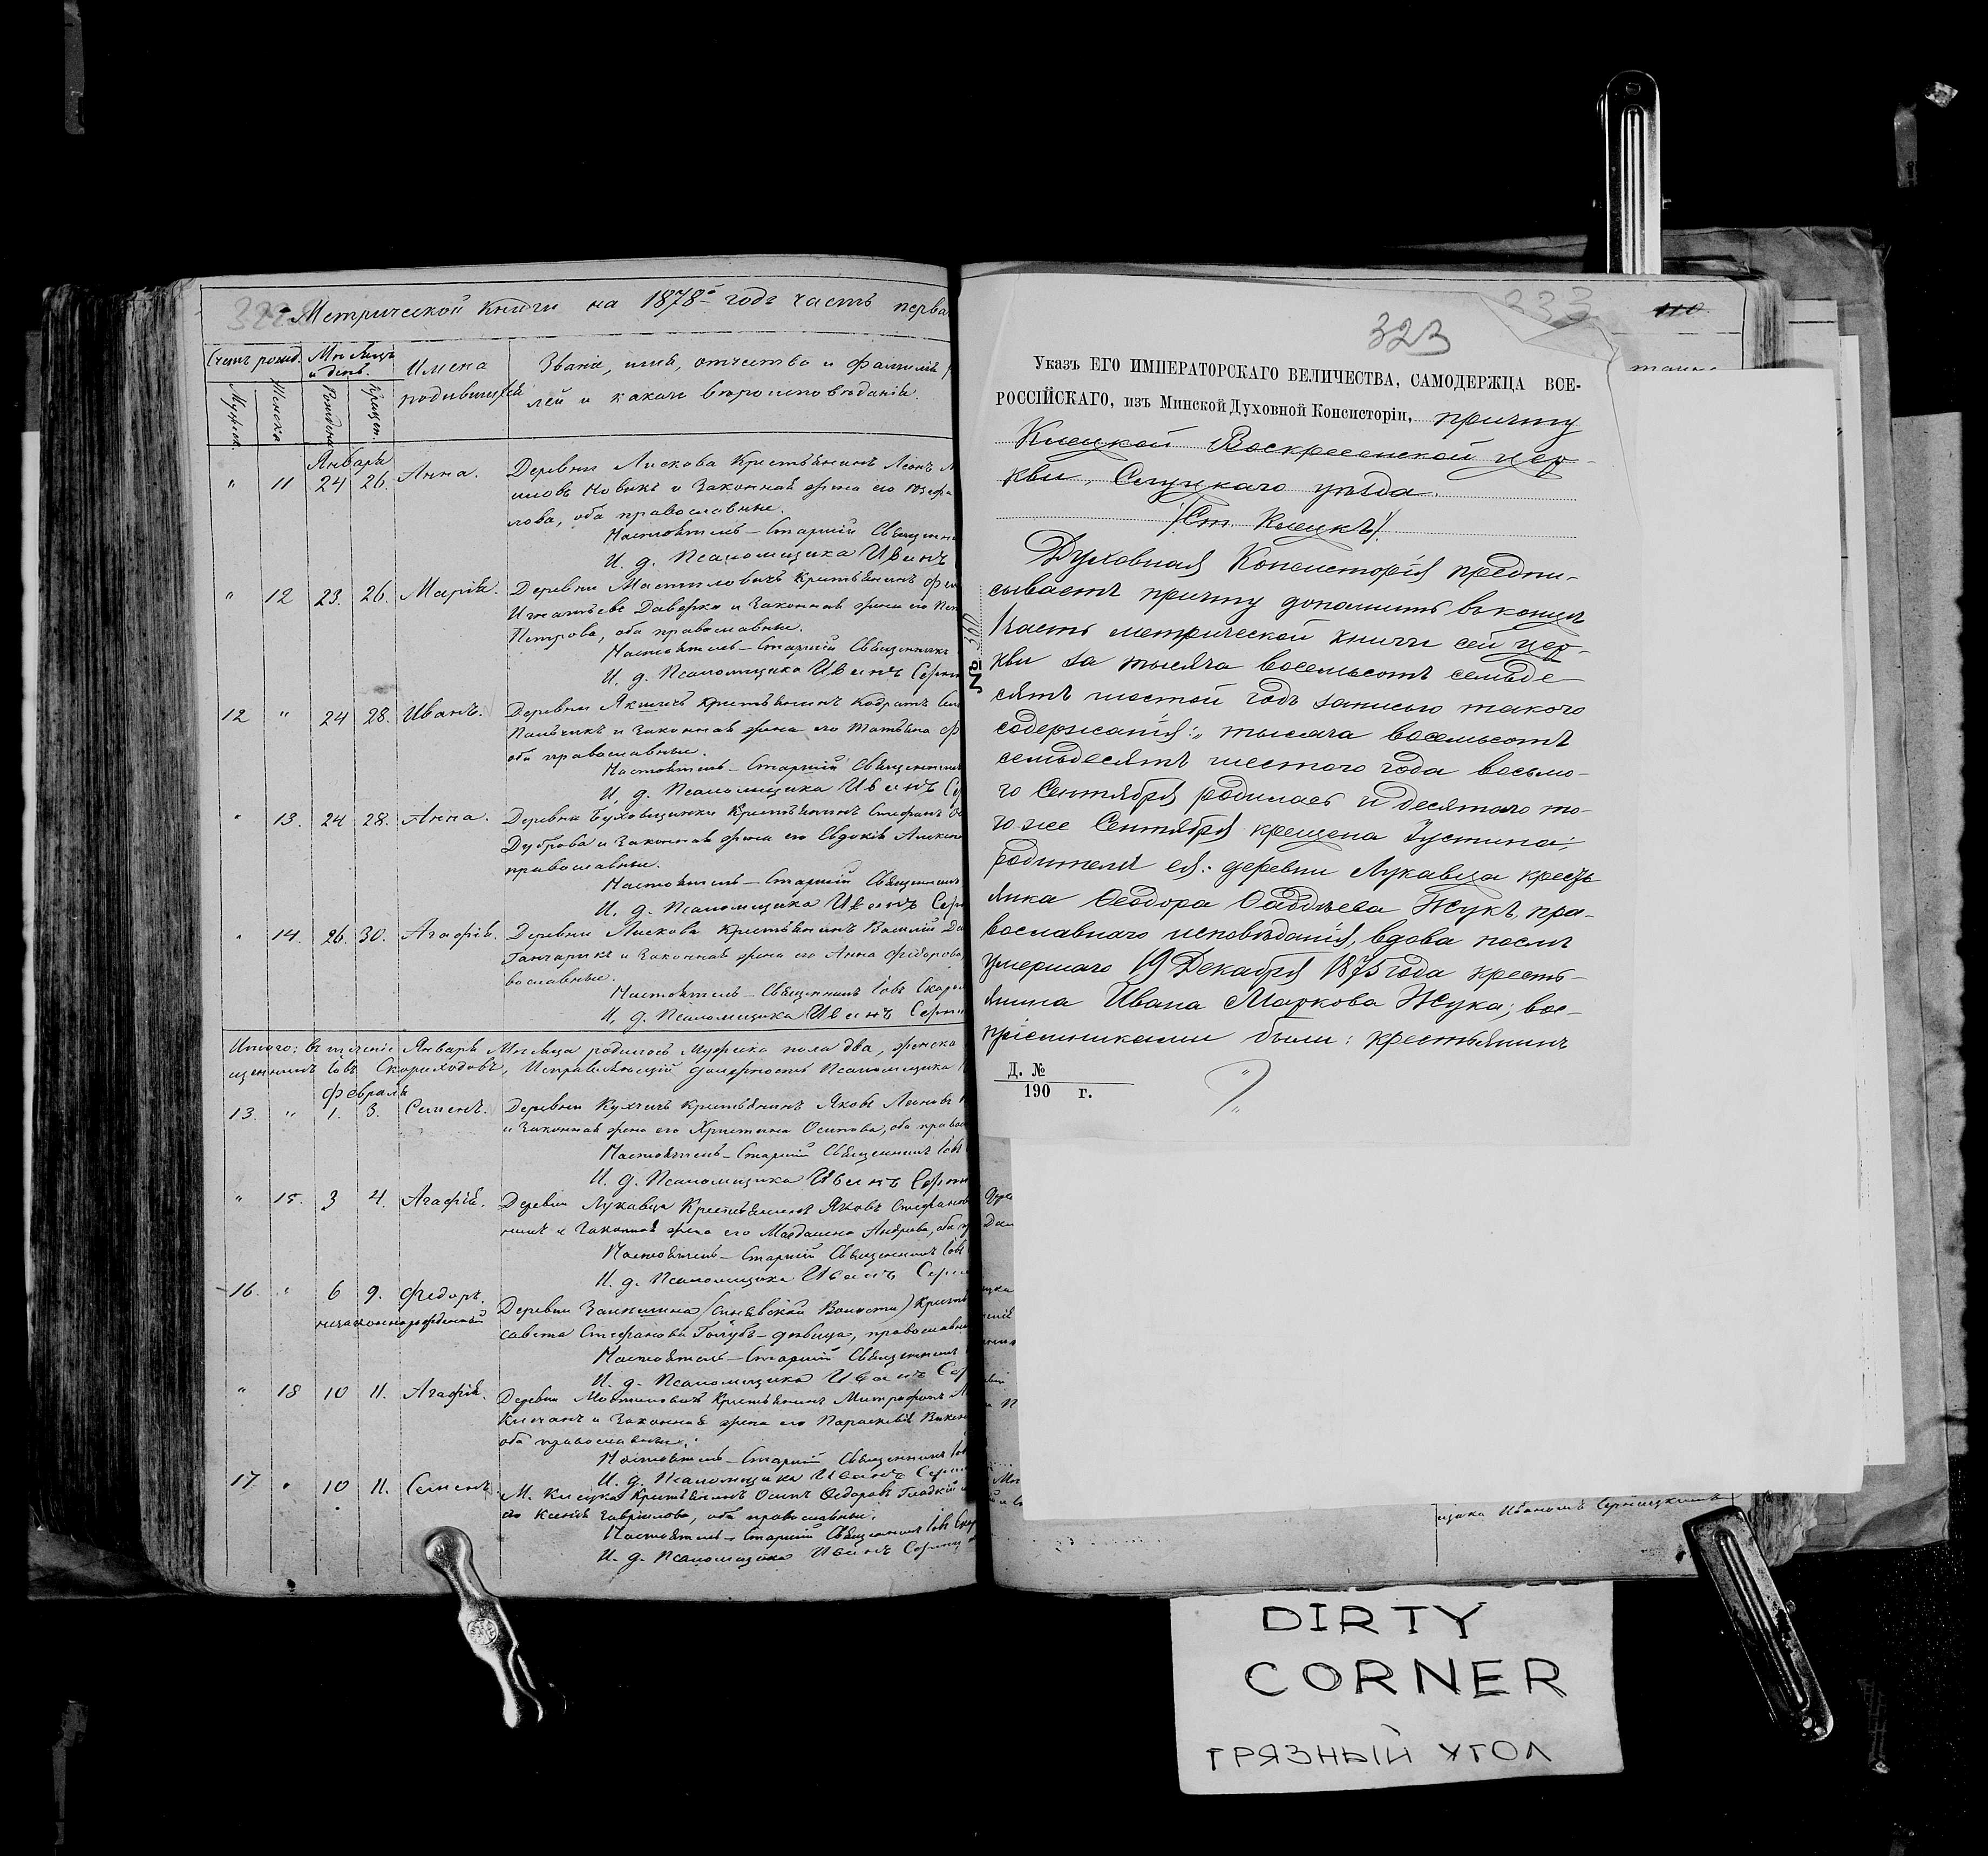 322
Метрической книги на 1878й годъ часть перва
Счетъ рожд.
Мѣсяцъ и день.
Имена родившихся
Званіе, имя, отчество и фамилія
лей и какого вѣроисповѣданія.
Мужска.
Женска
Рожденія
Крещен.
Январь
" 11 24 26. Анна. Деревни Лискова Крестьянинъ Леонъ
Новикъ и законная жена его Юзефа
лова, оба православные.
Настоятель – Старшій Священни
И. д. Псаломщика Иванъ
" 12 23. 26. Марія. Деревни Мастиловичъ Крестьянинъ
Игнатьевъ Даверко и законная жена его
Петрова, оба православные.
Настоятель – Старшій Священникъ
И. д. Псаломщика Иванъ Серни
12 " 24 28. Иванъ. Деревни Якшичъ Крестьянинъ Кодратъ
Пальчикъ и законная жена его Татьяна
оба православные.
Настоятель – Старшій Священникъ
И. д. Псаломщика Иванъ Се
" 13. 24 28. Анна. Деревни Буховщинки Крестьянинъ Стефанъ
Дуброва и законная жена его Евдокія Алексѣ
православные.
Настоятель – Старшій Священникъ
И. д. Псаломщика Иванъ Серн
" 14. 26. 30. Агафія. Деревни Лискова Крестьянинъ Василій Да
Ганчарикъ и законная жена его Анна Федорова
вославные.
Настоятель – Священникъ Іовъ Скори
И. д. Псаломщика Иванъ Серни
Итого: въ теченіе Января Мѣсяца родилось Мужска пола два, женска
щенникъ Іовъ Скороходовъ, Исправляющій должность Псаломщика
Февраль
13. " 1. 3. Семенъ. Деревни Кухчичъ Крестьянинъ Яковъ Леоновъ
и законная жена его Христина Осипова, оба право
Настоятель – Старшій Священникъ Іовъ
И. д. Псаломщика Иванъ Серни
" 15. 3 4. Агафія. Деревни Лукавца Крестьянинъ Яковъ Стефанов
и законная жена его Магдалена Андреева, оба пр
Настоятель – Старшій Священникъ Іовъ
И. д. Псаломщика Иванъ Серни
16. " 6 9. Федоръ.
незаконнорожденный
Деревни Заельшина (Синявской Волости) Крестья
савета Стефанова Голубъ – дѣвица, православна
Настоятель – Старшій Священникъ
И. д. Псаломщика Иванъ Сер
" 18 10 11. Агафія. Деревни Мастиловичъ Крестьянинъ Митрофанъ
и законная жена его Параскевія Викен
оба православные.
Настоятель – Старшій Священникъ Іовъ
И. д. Псаломщика Иванъ Серни
17. " 10 11. Семенъ. М. Клецка Крестьянинъ Осипъ Федоровъ Гладкій
его Ксенія Гаврилова, оба православные.
Настоятель – Старшій Священникъ Іовъ Скор
И. д. Псаломщика Иванъ Серниц
333
110
323
Указъ ЕГО ИМПЕРАТОРСКАГО ВЕЛИЧЕСТВА, САМОДЕРЖЦА ВСЕ-
РОССІЙСКАГО, изъ Минской Духовной Консисторіи, причту
Клецкой Воскресенской цер-
кви, Слуцкаго уѣзда.
/Ст. Клецкъ/.
Духовная Консисторія предпи-
сываетъ причту дополнить въ концѣ
1 часть метрической книги сей цер-
кви за тысяча восемьсотъ семьде-
сятъ шестой годъ записью такого
содержанія: „тысяча восемьсотъ
семьдесятъ шестого года восьмо-
го Сентября родилась и десятаго то-
го же Сентября крещена Іустина;
родители ея: деревни Лукавца кресть-
янка Ѳеодора Ѳаддѣева Жукъ, пра-
вославнаго исповѣданія, вдова послѣ
умершаго 19 Декабря 1875 года кресть-
янина Ивана Маркова Жука; вос-
пріемниками были: крестьянинъ
№
Д. №
190 г.
щика Иваномъ Серницкимъ
DIRTY
CORNER
ГРЯЗНЫЙ УГОЛ